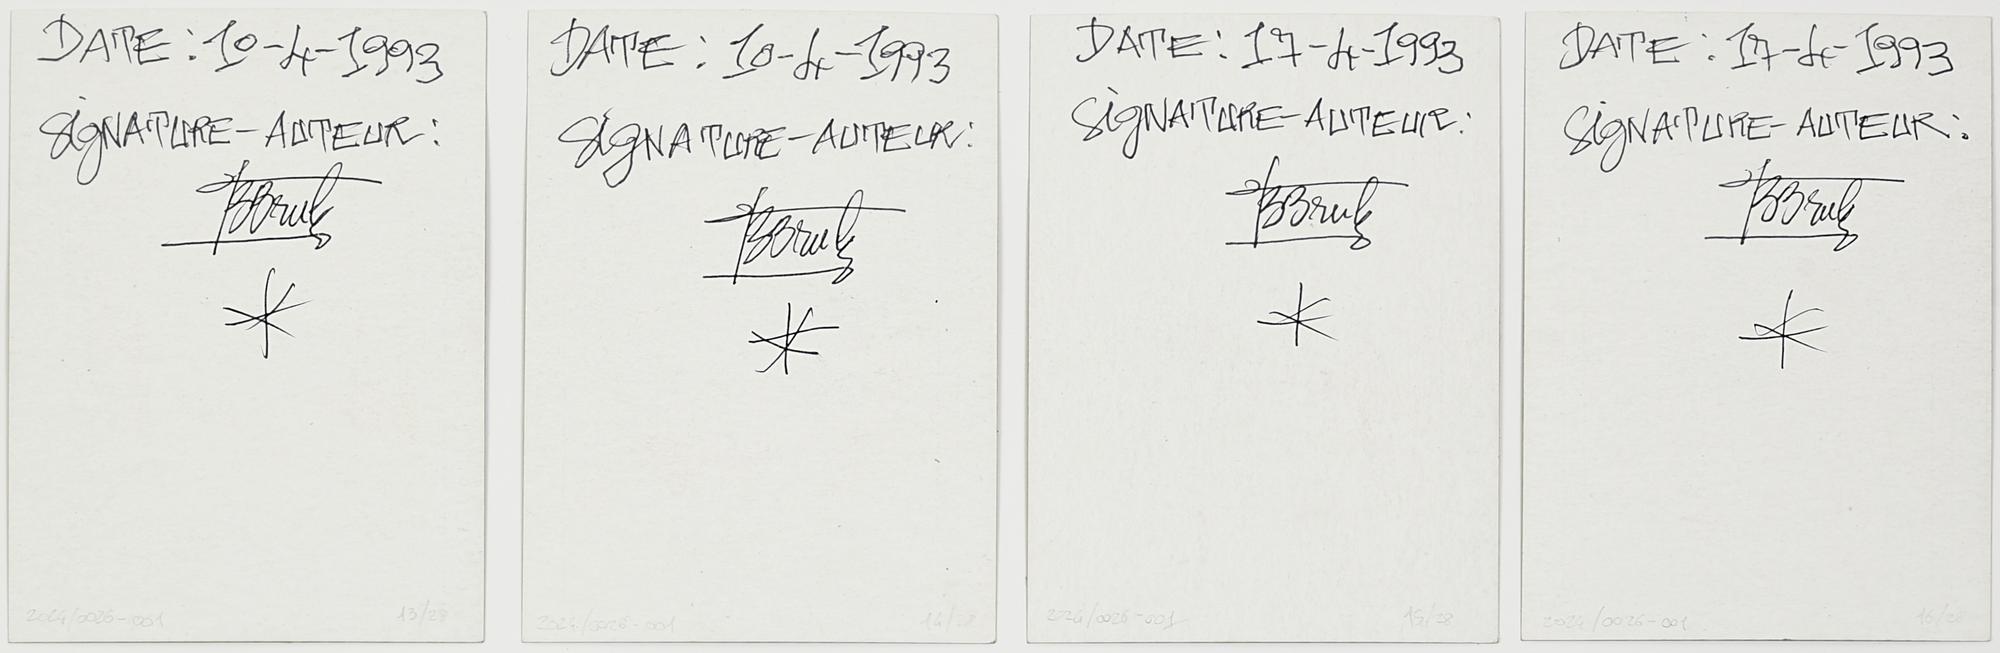 DATE : 10-4-1993
SIGNATURE-AUTEUR :
BBruly
2024/0026-001 13/28
DATE : 10-4-1993
SIGNATURE-AUTEUR :
BBruly
2024/0026-001 14/28
DATE : 17-4-1993
SIGNATURE-AUTEUR :
BBruly
2024/0026-001 15/28
DATE : 17-4-1993
SIGNATURE-AUTEUR :
BBruly
2024/0026-001 16/28